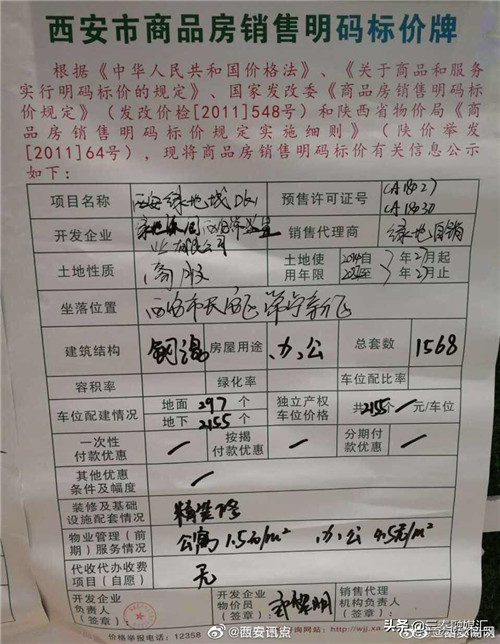 西安市商品房销售明码标价牌
根据《中华人民共和国价格法》、《关于商品和服务
实行明码标价的规定》、国家发改委《商品房销售明码标
价规定》(发改价检[2011]548号)和陕西省物价局《商
品房销售明码标价规定实施细则》(陕价举发
[2011]64号),现将商品房销售明码标价有关信息公示
如下:
项目名称 西安绿地城DK1 预售许可证号
开发企业 销售代理商 绿地自销
土地性质 商服 土地使用年限 年 月起 年 月止
坐落位置
建筑结构 钢混 房屋用途 办公 总套数 1568
容积率 绿化率 车位配比率
车位配建情况 地面 297 个 地下 2155 个 独立产权车位价格 共2155个 / 元/车位
一次性付款优惠 / 按揭付款优惠 / 分期付款优惠 /
其他优惠条件及幅度 /
装修及基础设施配套情况 精装修
物业管理(前期)服务情况 公寓1.5元/m² 办公4.5元/m²
代收代办收费项目(自愿) 无
开发企业负责人(签章): 开发企业物价员(签章): 销售代理机构负责人(签章):
价格举报电话:12358
@西安讯点
头条@三秦融媒汇